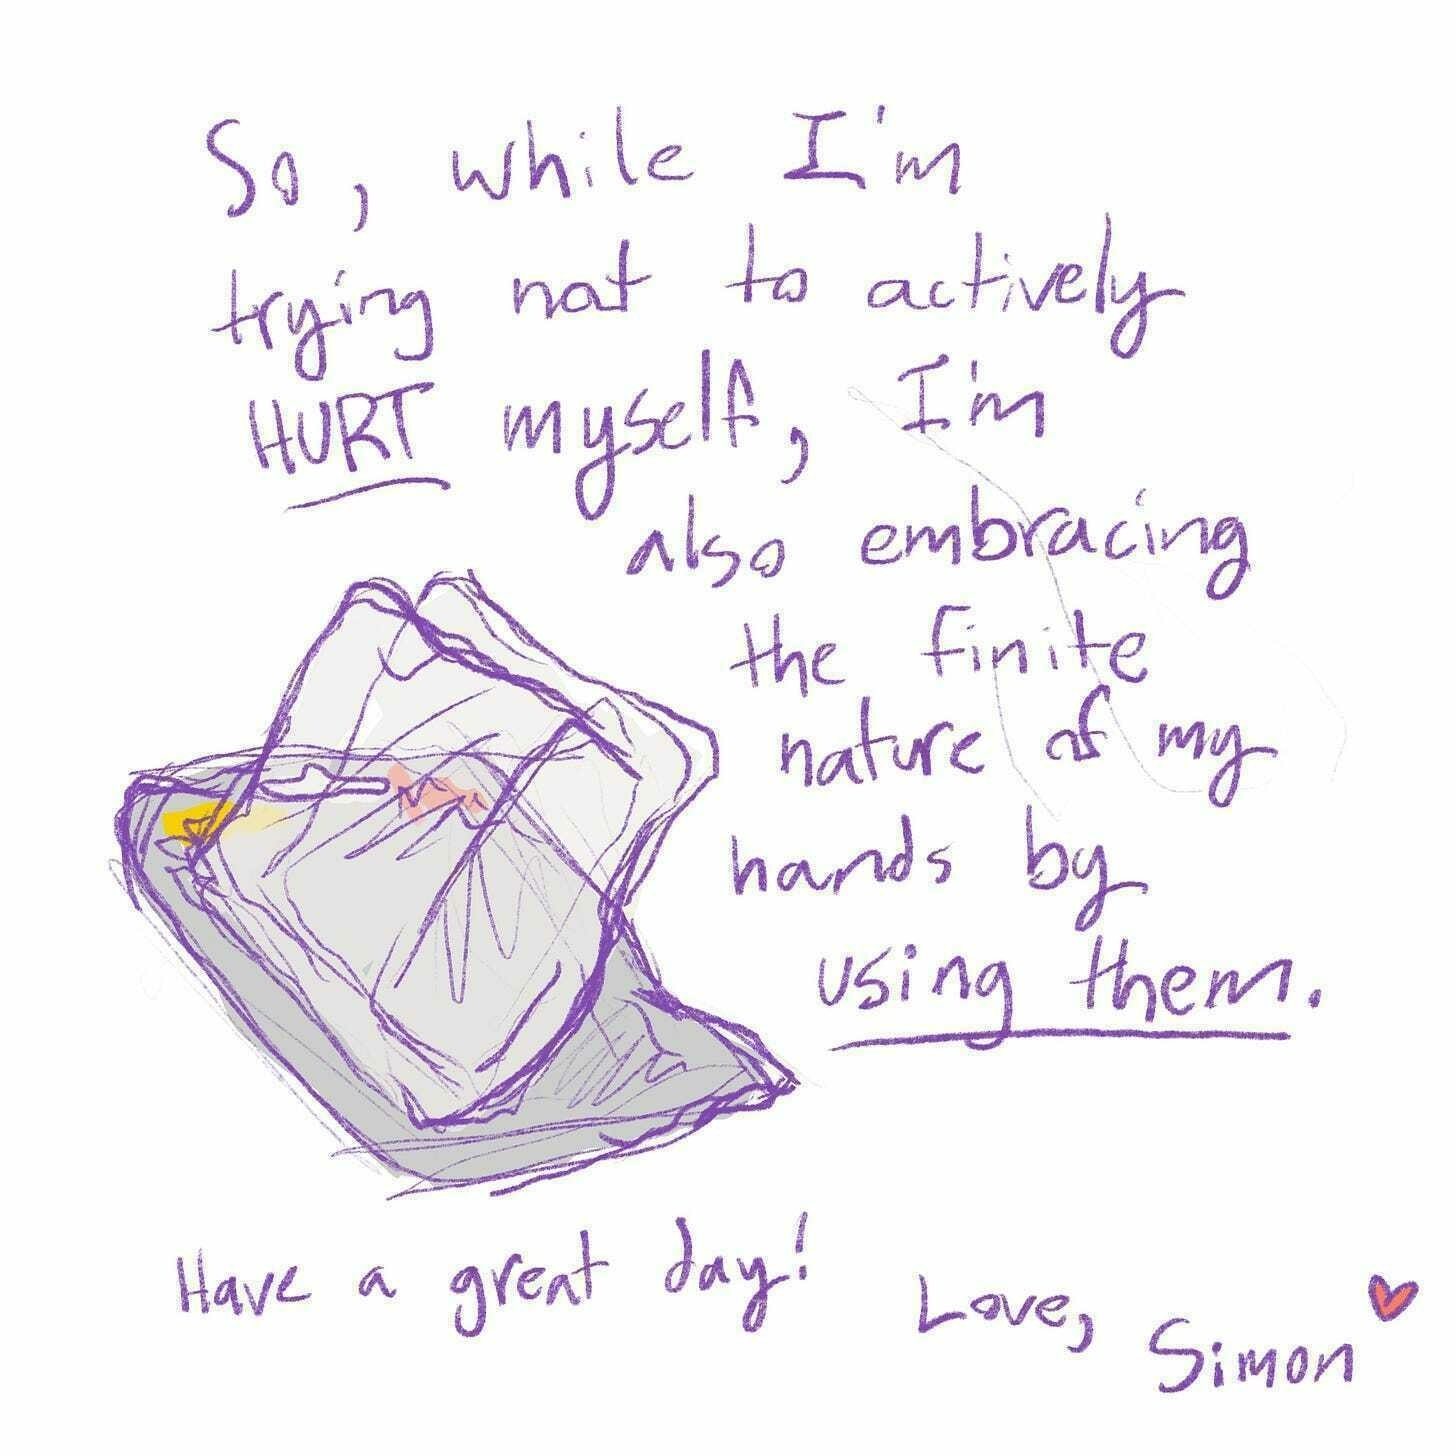 So, while I'm
trying not to actively
HURT myself, I'm
also embracing
the finite
nature of my
hands by
using them.
Have a great day!
Love,
Simon